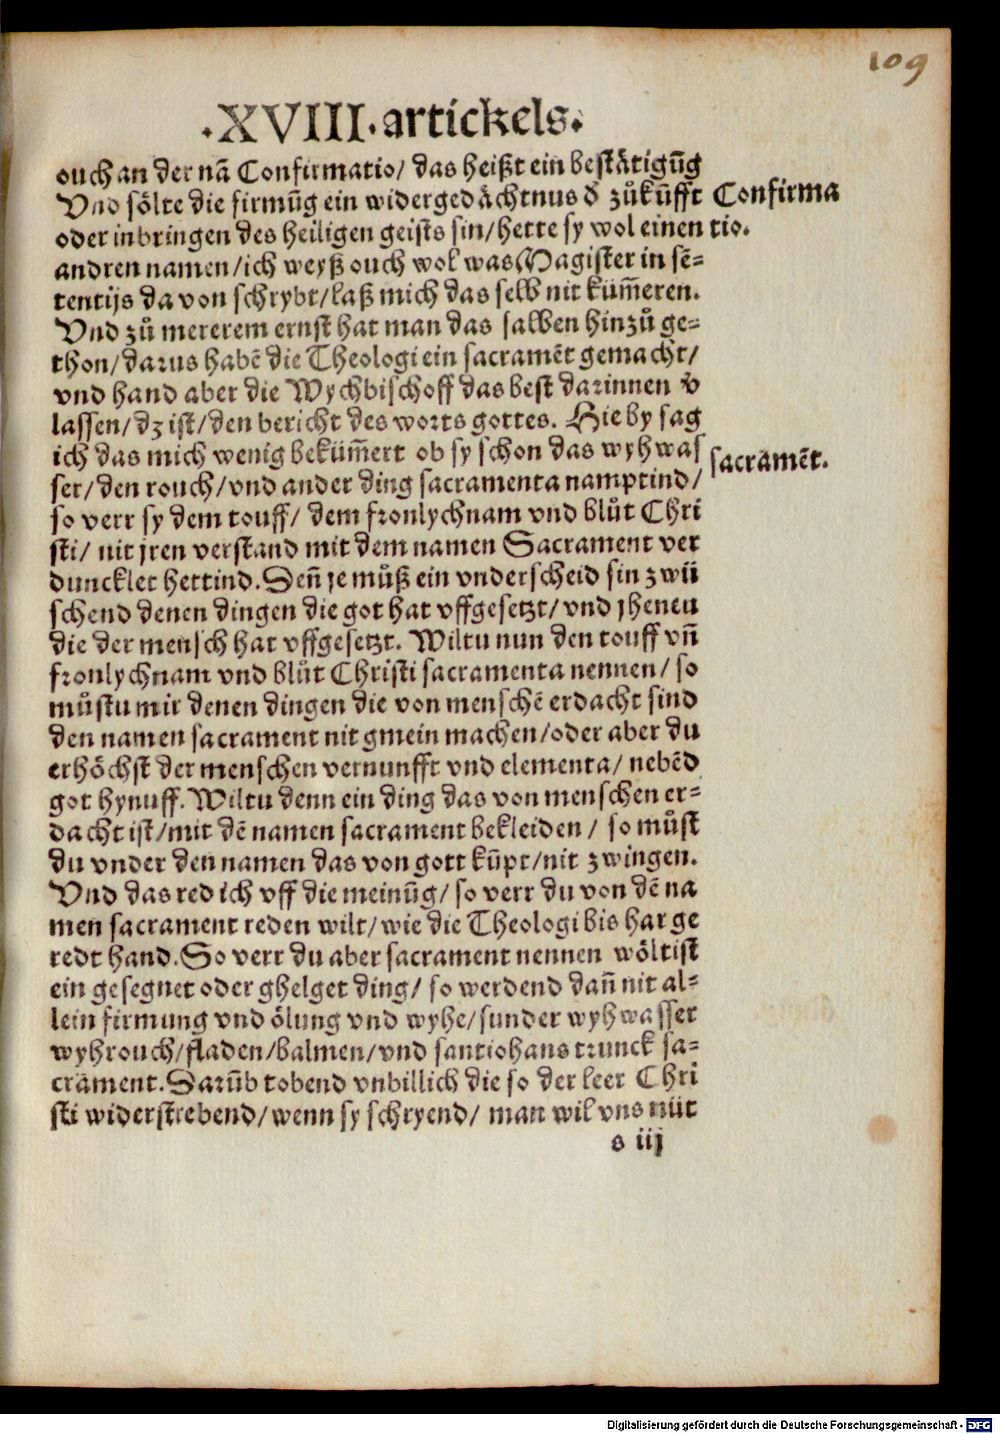 109
.XVIII.artickels.
ouch an der nā Confirmatio/ das heißt ein bestätigūg
Vnd sölte die firmūg ein widergedächtnus d̄ zůkūfft
Confirma
oder inbringen des heiligen geists sin/hette sy wol einen
tio.
andren namen/ich weyß ouch wol was Magister in sē=
tentijs da von schrybt/laß mich das selb nit küm̄eren.
Vnd zů mererem ernst hat man das salben hinzů ge=
thon/darus habē die Theologi ein sacramēt gemacht/
vnd hand aber die Wychbischoff das best darinnen v̄
lassen/dz ist/den bericht des worts gottes. Hie by sag
ich das mich wenig beküm̄ert ob sy schon das wyhwas
sacramēt.
ser/den rouch/vnd ander ding sacramenta namptind/
so verr sy dem touff/ dem fronlychnam vnd blůt Chri
sti/ nit jren verstand mit dem namen Sacrament ver
duncklet hettind. Deñ je můß ein vnderscheid sin zwü
schend denen dingen die got hat vffgesetzt/vnd jhenen
die der mensch hat vffgesetzt. Wiltu nun den touff vñ
fronlychnam vnd blůt Christi sacramenta nennen/ so
můstu mit denen dingen die von menschē erdacht sind
den namen sacrament nit gmein machen/oder aber du
erhöchst der menschen vernunfft vnd elementa/ nebēd
got hynuff. Wiltu denn ein ding das von menschen er=
dacht ist/mit dē namen sacrament bekleiden/ so můst
du vnder den namen das von gott kūpt/nit zwingen.
Vnd das red ich vff die meinūg/ so verr du von dē na
men sacrament reden wilt/wie die Theologi bis har ge
redt hand. So verr du aber sacrament nennen wöltist
ein gesegnet oder ghelget ding/ so werdend dañ nit al=
lein firmung vnd ölung vnd wyhe/sunder wyhwasser
wyhrouch/fladen/balmen/vnd santiohans trunck sa=
crament. Darūb tobend vnbillich die so der leer Chri
sti widerstrebend/wenn sy schryend/ man wil vns nüt
s iij
Digitalisierung gefördert durch die Deutsche Forschungsgemeinschaft - DFG